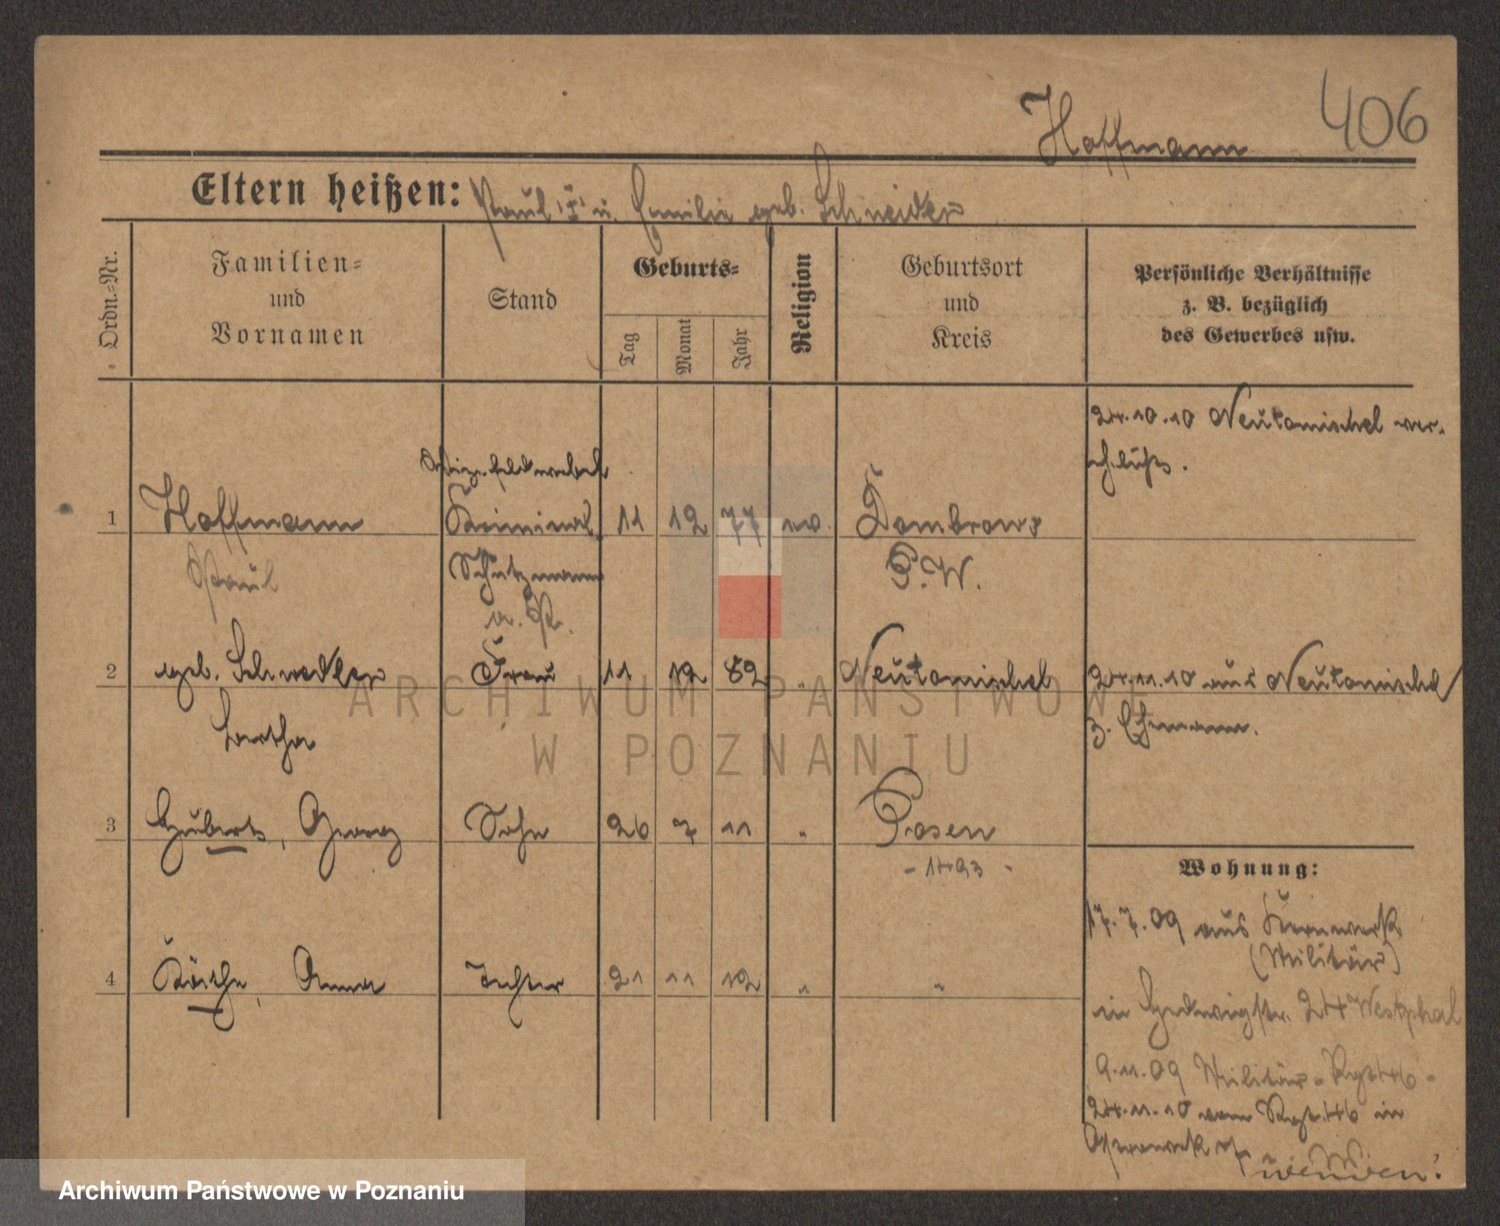 406
Hoffmann
Eltern heißen: Paul u. geb. Schneider
Ordn.=Nr.
Familien=
und
Vornamen
Stand
Geburts=
Tag
Monat
Jahr
Religion
Geburtsort
und
Kreis
Persönliche Verhältnisse
z. B. bezüglich
des Gewerbes usw.
24.10.10 Neutomischel
1 Hoffmann Kriminal 11 12 77 Dombrowo
Paul Schutzmann P.W.
a. Pr.
2 geb. Frau 11 12 82 " Neutomischel 24.11.10 aus Neutomischel
Bertha z. Ehemann.
3 Hubert, Georg Sohn 26 7 11 " Posen
- 1493 -
4 Käthe, Anna Tochter 21 11 12 " "
Wohnung:
17.7.09 aus Kernwerk
(Militär)
in Hedwigstr. 24 Westphal
9.11.09 Militär - Rgt 46 -
24.11.10 vom Rgt. 46 in
wenden!
ARCHIWUM PAŃSTWOWE
W POZNANIU
Archiwum Państwowe w Poznaniu